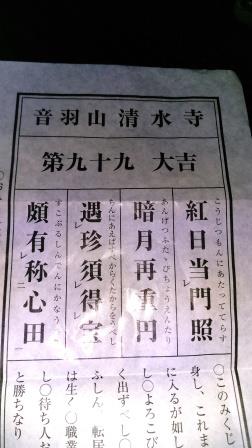 音羽山清水寺
第九十九 大吉
こうじつもんにあたつててらす
紅日当門照
あんげつふたゝびちょうえんたり
暗月再重円
ちんにあえばすべからくたからをうべし
遇珍須得宝
レ
すこぶるしんでんにかなう
頗有称心田
レ 二
〇このみくじ
身し、これま
に入るが如
し〇よろこび
く出ずべし〇
ふしん 転居
は生く〇職業
し〇待ち人お
と勝ちなり